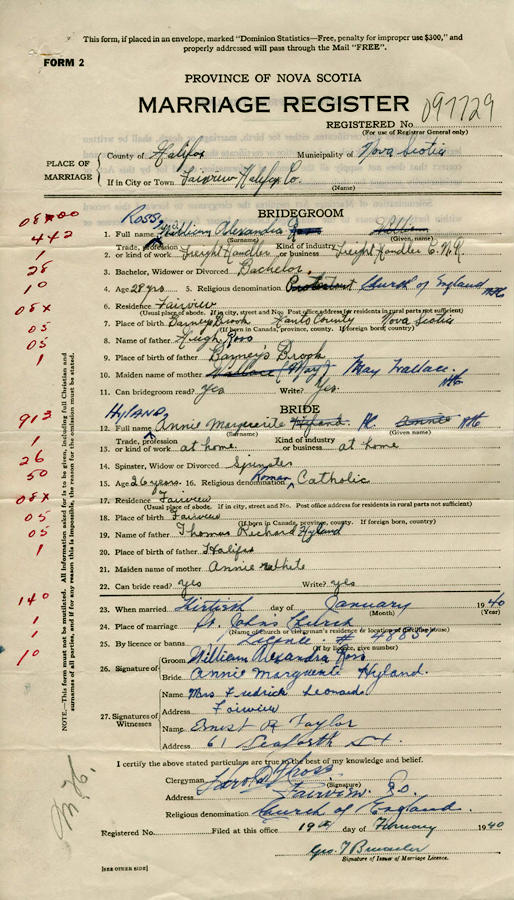 This form, if placed in an envelope, marked "Dominion Statistics—Free, penalty for improper use $300," and
properly addressed will pass through the Mail "FREE".
FORM 2
PROVINCE OF NOVA SCOTIA
MARRIAGE REGISTER
097729
REGISTERED No.
(For use of Registrar General only)
PLACE OF MARRIAGE
County of Halifax Municipality of Nova Scotia
If in City or Town Fairview Halifax Co.
(Name)
BRIDEGROOM
ROSS
1. Full name William Alexandra Ross William
(Surname) (Given name)
2. Trade, profession or kind of work Freight Handler Kind of industry or business Freight Handler C.N.R.
3. Bachelor, Widower or Divorced Bachelor.
4. Age 28 yrs. 5. Religious denomination Protestant Church of England
6. Residence Fairview
(Usual place of abode. If in city, street and No. Post office address for residents in rural parts not sufficient)
7. Place of birth Barney Brook Hants County Nova Scotia
(If born in Canada, province, county. If foreign born, country)
8. Name of father Hugh Ross
9. Place of birth of father Barney's Brook
10. Maiden name of mother Wallace (May) May Wallace.
11. Can bridegroom read? Yes Write? Yes.
HYLAND
BRIDE
12. Full name Annie Marguerite Hyland. Annie
(Surname) (Given name)
13. Trade, profession or kind of work at home Kind of industry or business at home
14. Spinster, Widow or Divorced Spinster
15. Age 26 years. 16. Religious denomination Roman Catholic
17. Residence Fairview
(Usual place of abode. If in city, street and No. Post office address for residents in rural parts not sufficient)
18. Place of birth Fairview
(If born in Canada, province, county. If foreign born, country)
19. Name of father Thomas Richard Hyland
20. Place of birth of father Halifax
21. Maiden name of mother Annie
22. Can bride read? yes Write? yes
23. When married day of January 1940
(Month) (Year)
24. Place of marriage St. John's Church
(Name of Church or clergyman's residence or location of dwelling house)
25. By licence or banns
(If by licence, give number)
26. Signature of Groom William Alexandra Ross
Bride Annie Marguerite Hyland.
27. Signatures of Witnesses
Name Mrs Fredrick Leonard
Address Fairview
Name Ernest R Taylor
Address 61 Seaforth St.
I certify the above stated particulars are true to the best of my knowledge and belief.
Clergyman
(Signature)
Address Fairview
Religious denomination Church of England.
Registered No. Filed at this office 19th day of February 1940
Geo. T
Signature of Issuer of Marriage Licence.
[SEE OTHER SIDE]
NOTE.—This form must not be mutilated. All information asked for is to be given, including full Christian and
surnames of all parties, and if for any reason this is impossible, the reason for the omission must be stated.
442
1
28
10
08x
05
05
1
913
1
26
50
08x
05
05
1
140
1
1
10